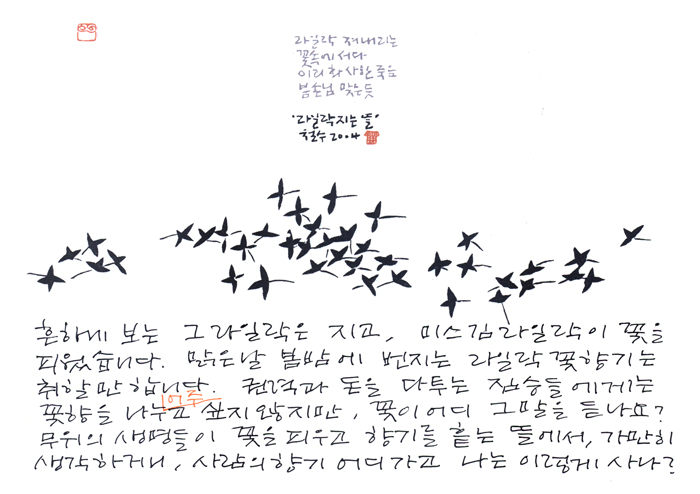 라일락 져내리는
꽃속에 서다
이리 화사한 죽음
봄손님 맞은듯
'라일락 지는 뜰'
철수 2004
흔하게 보는 그 라일락은 지고, 미스김라일락이 꽃을
피웠습니다. 맑은날 봄밤에 번지는 라일락 꽃향기는
취할만 합니다. 권력과 돈을 다투는 짐승들에게는
꽃향을 나누어주고 싶지 않지만, 꽃이 어디 그 말을 듣나요?
무위의 생명들이 꽃을 피우고 향기를 흩는 뜰에서, 가만히
생각하거니, 사람의 향기 어디가고 나는 이렇게 사나?